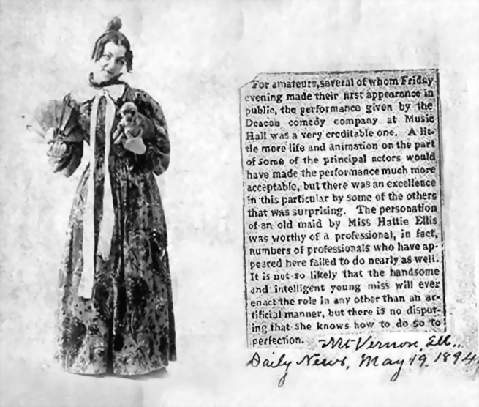 For amateurs, several of whom Friday
evening made their first appearance in
public, the performance given by the
Deacon comedy company at Music
Hall was a very creditable one. A lit-
tle more life and animation on the part
of some of the principal actors would
have made the performance much more
acceptable, but there was an excellence
in this particular by some of the others
that was surprising. The personation
of an old maid by Miss Hattie Ellis
was worthy of a professional, in fact,
numbers of professionals who have ap-
peared here failed to do nearly as well.
It is not so likely that the handsome
and intelligent young miss will ever
enact the role in any other than an ar-
tificial manner, but there is no disput-
ing that she knows how to do so to
perfection.
Mt Vernon, Ill.,
Daily News, May 19, 1894